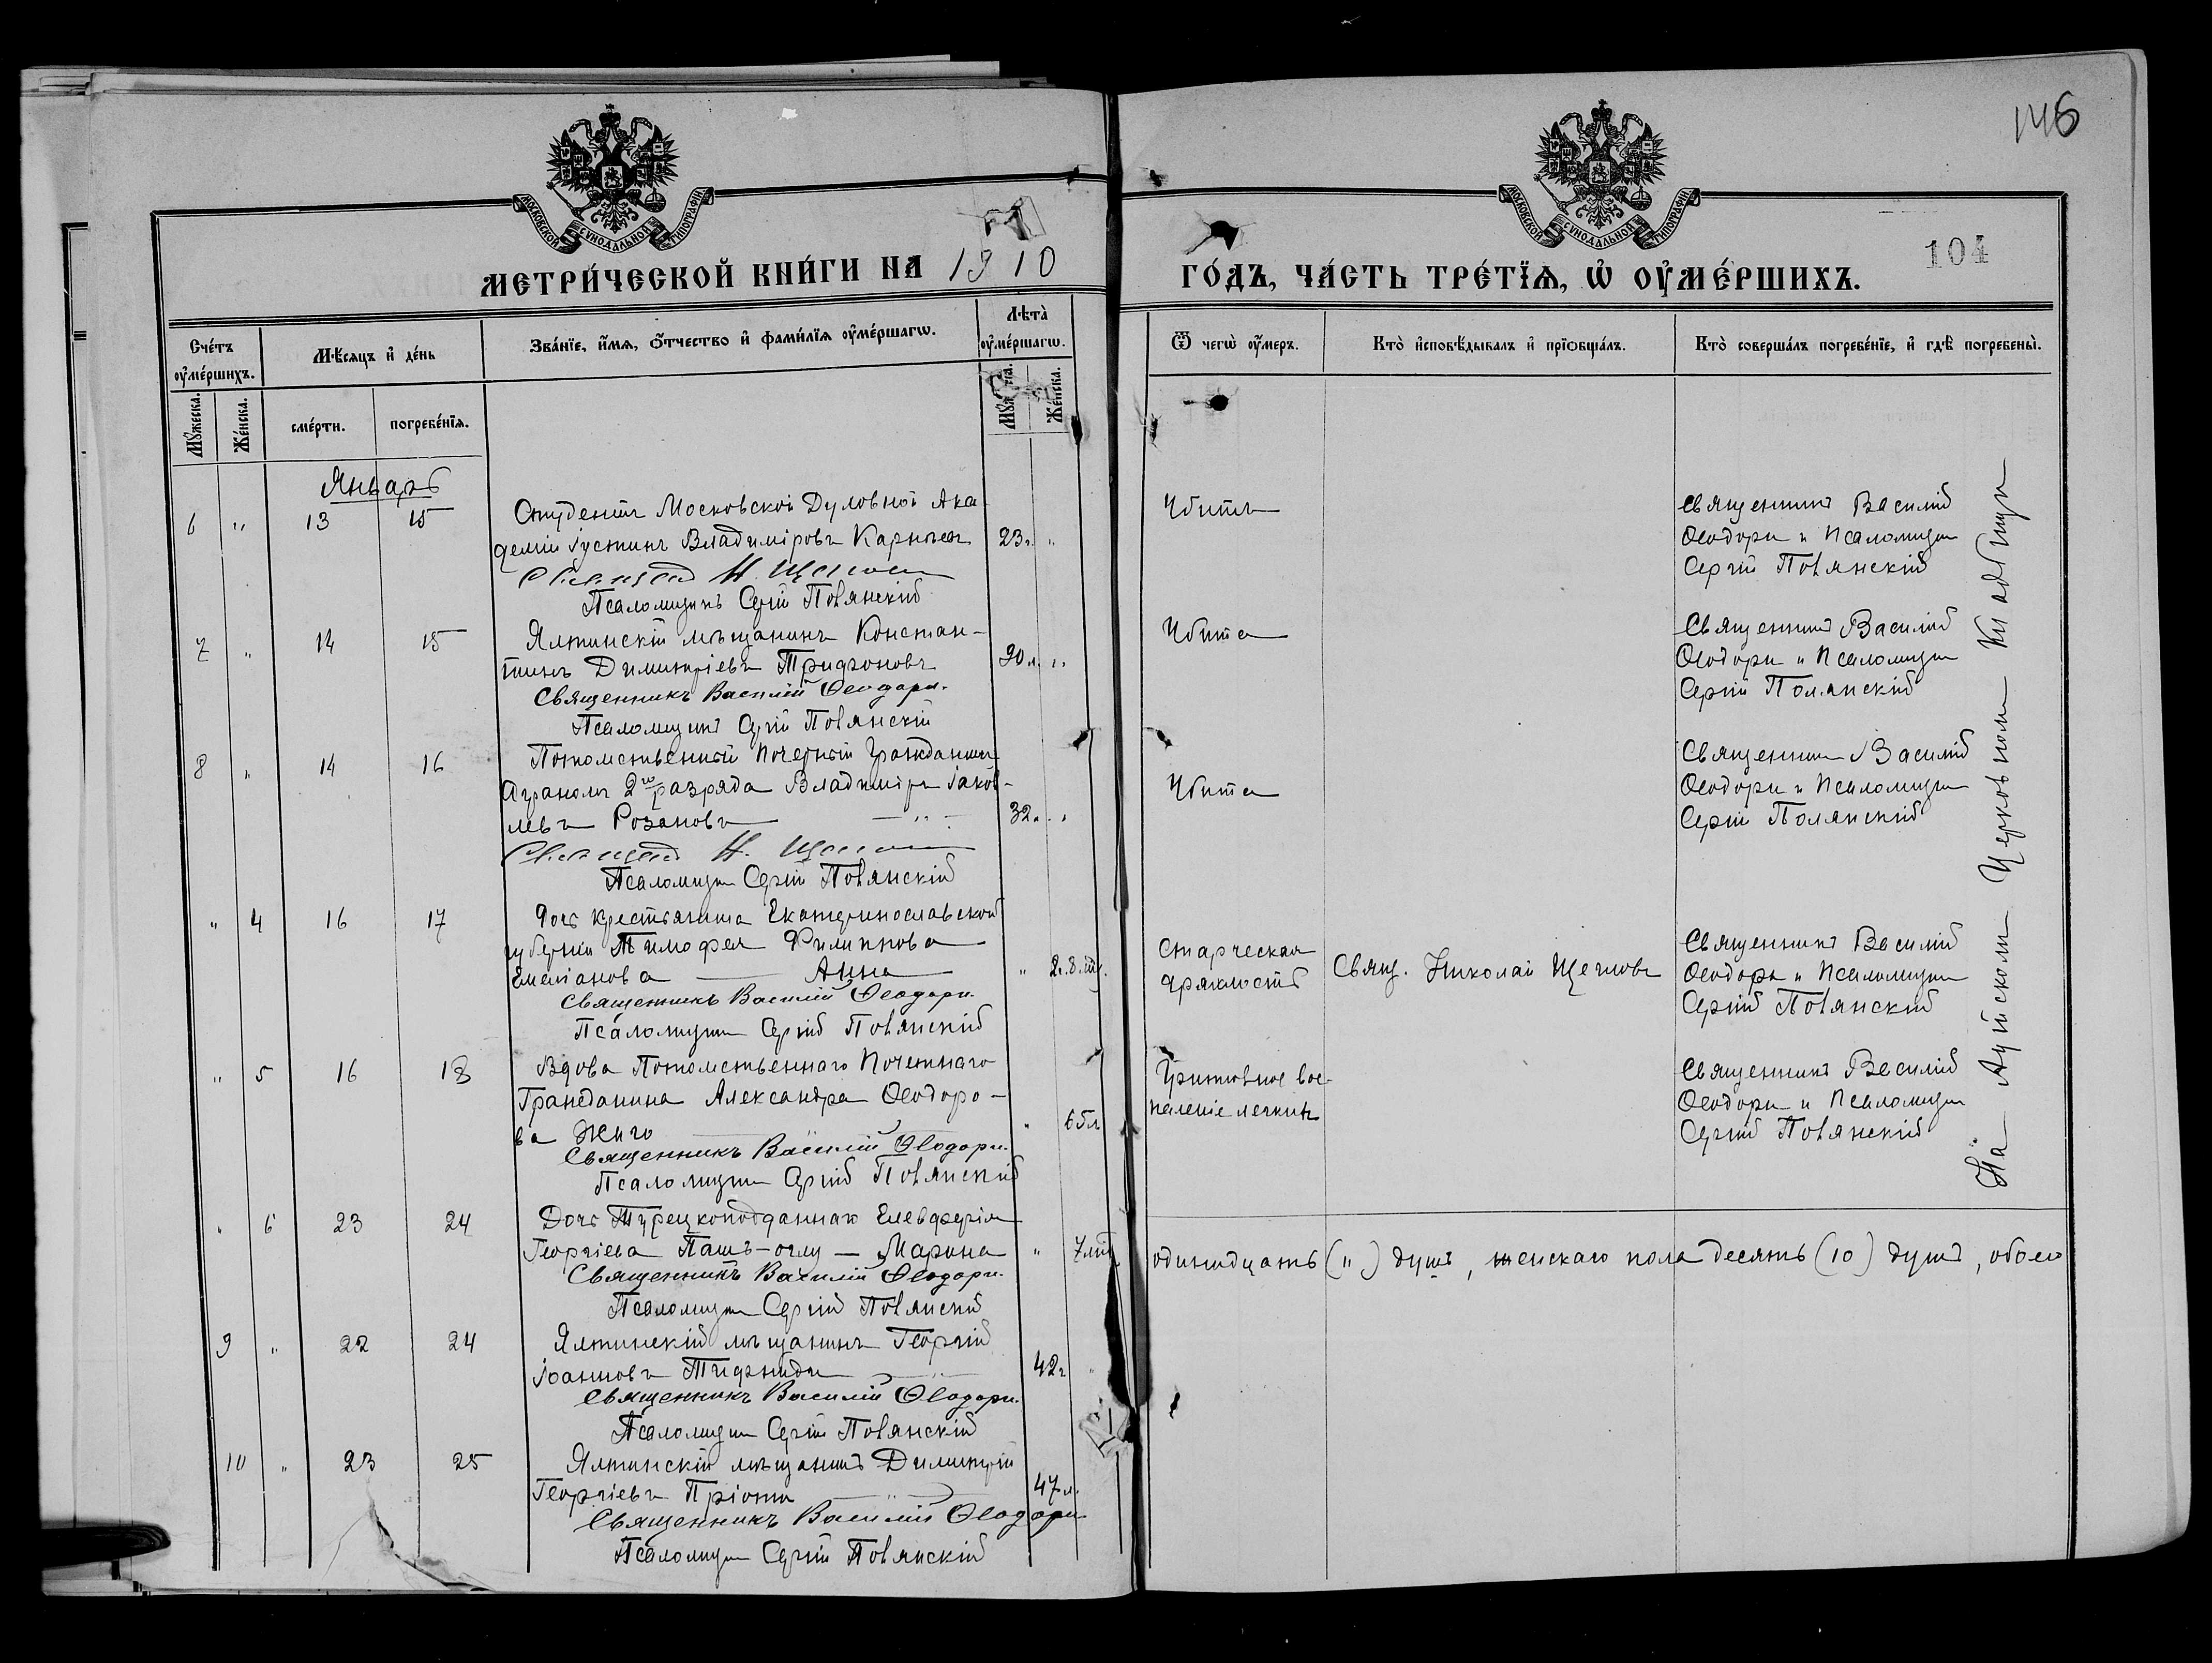 146
104
МОСКОВСКОЙ СѴНОДАЛЬНОЙ ТИПОГРАФІИ.
МОСКОВСКОЙ СѴНОДАЛЬНОЙ ТИПОГРАФІИ.
МЕТРИ́ЧЕСКОЙ КНИ́ГИ НА 1910
ГО́ДЪ, ЧА́СТЬ ТРЕ́ТЇѦ, Ѡ҆ ОУ҆МЕ́РШИХЪ.
Сче́тъ оу҆ме́ршихъ.
Мꙋ́жеска.
Же́нска.
Мѣ́сѧцъ и҆ де́нь
сме́рти.
погребе́нїѧ.
Зва́нїе, и҆́мѧ, ѻ҆́тчество и҆ фами́лїѧ оу҆ме́ршагѡ.
Лѣта̀ оу҆ме́ршагѡ.
Же́нска.
Ѿ чегѡ̀ оу҆́меръ.
Кто̀ и҆сповѣ́дывалъ и҆ прїѡбща́лъ.
Кто̀ соверша́лъ погребе́нїе, и҆ гдѣ̀ погребены̀.
Январь
6 " 13 15
Студентъ Московской Духовной Ака
деміи Іустинъ Владиміровъ
23 г. "
Псаломщикъ Сергій Полянскій
Убитъ
Священникъ Василій
Ѳеодори и Псаломщикъ
Сергій Полянскій
7 " 14 15
Ялтинскій мѣщанинъ Констан-
тинъ Димитріевъ Трифоновъ
"
Священникъ Василій Ѳеодори.
Псаломщикъ Сергій Полянскій
Убитъ
Священникъ Василій
Ѳеодори и Псаломщикъ
Сергій Полянскій
8 " 14 16
Потомственный Почетный Гражданинъ
Агрономъ 2го разряда Владиміръ Іаков-
левъ Розановъ
32 "
Псаломщикъ Сергій Полянскій
Убитъ
Священникъ Василій
Ѳеодори и Псаломщикъ
Сергій Полянскій
" 4 16 17
Дочь крестьянина Екатеринославской
губерніи Тимофея Филиппова
Емеліанова — Анна
" 2 г. 8 м.
Священникъ Василій Ѳеодори.
Псаломщикъ Сергій Полянскій
Старческая
дряхлость
Свящ. Николай Щегловъ
Священникъ Василій
Ѳеодори и Псаломщикъ
Сергій Полянскій
" 5 16 18
Вдова Потомственнаго Почетнаго
Гражданина Александра Ѳеодоро-
ва
" 65 л
Священникъ Василій Ѳеодори.
Псаломщикъ Сергій Полянскій
воспаленіе легкихъ
Священникъ Василій
Ѳеодори и Псаломщикъ
Сергій Полянскій
На Аутскомъ Церковномъ Кладбищѣ
" 6 23 24
Дочь Турецкоподданнаго Елевферія
Георгіева Пашъ-оглу — Марина
" 7
Священникъ Василій Ѳеодори.
Псаломщикъ Сергій Полянскій
одинадцать (11) душъ, женскаго пола десять (10) душъ, обоего
9 " 22 24
Ялтинскій мѣщанинъ Георгій
Іоанновъ
42 г
Священникъ Василій Ѳеодори.
Псаломщикъ Сергій Полянскій
10 " 23 25
Ялтинскій мѣщанинъ Димитрій
Георгіевъ
47 л.
Священникъ Василій Ѳеодори
Псаломщикъ Сергій Полянскій